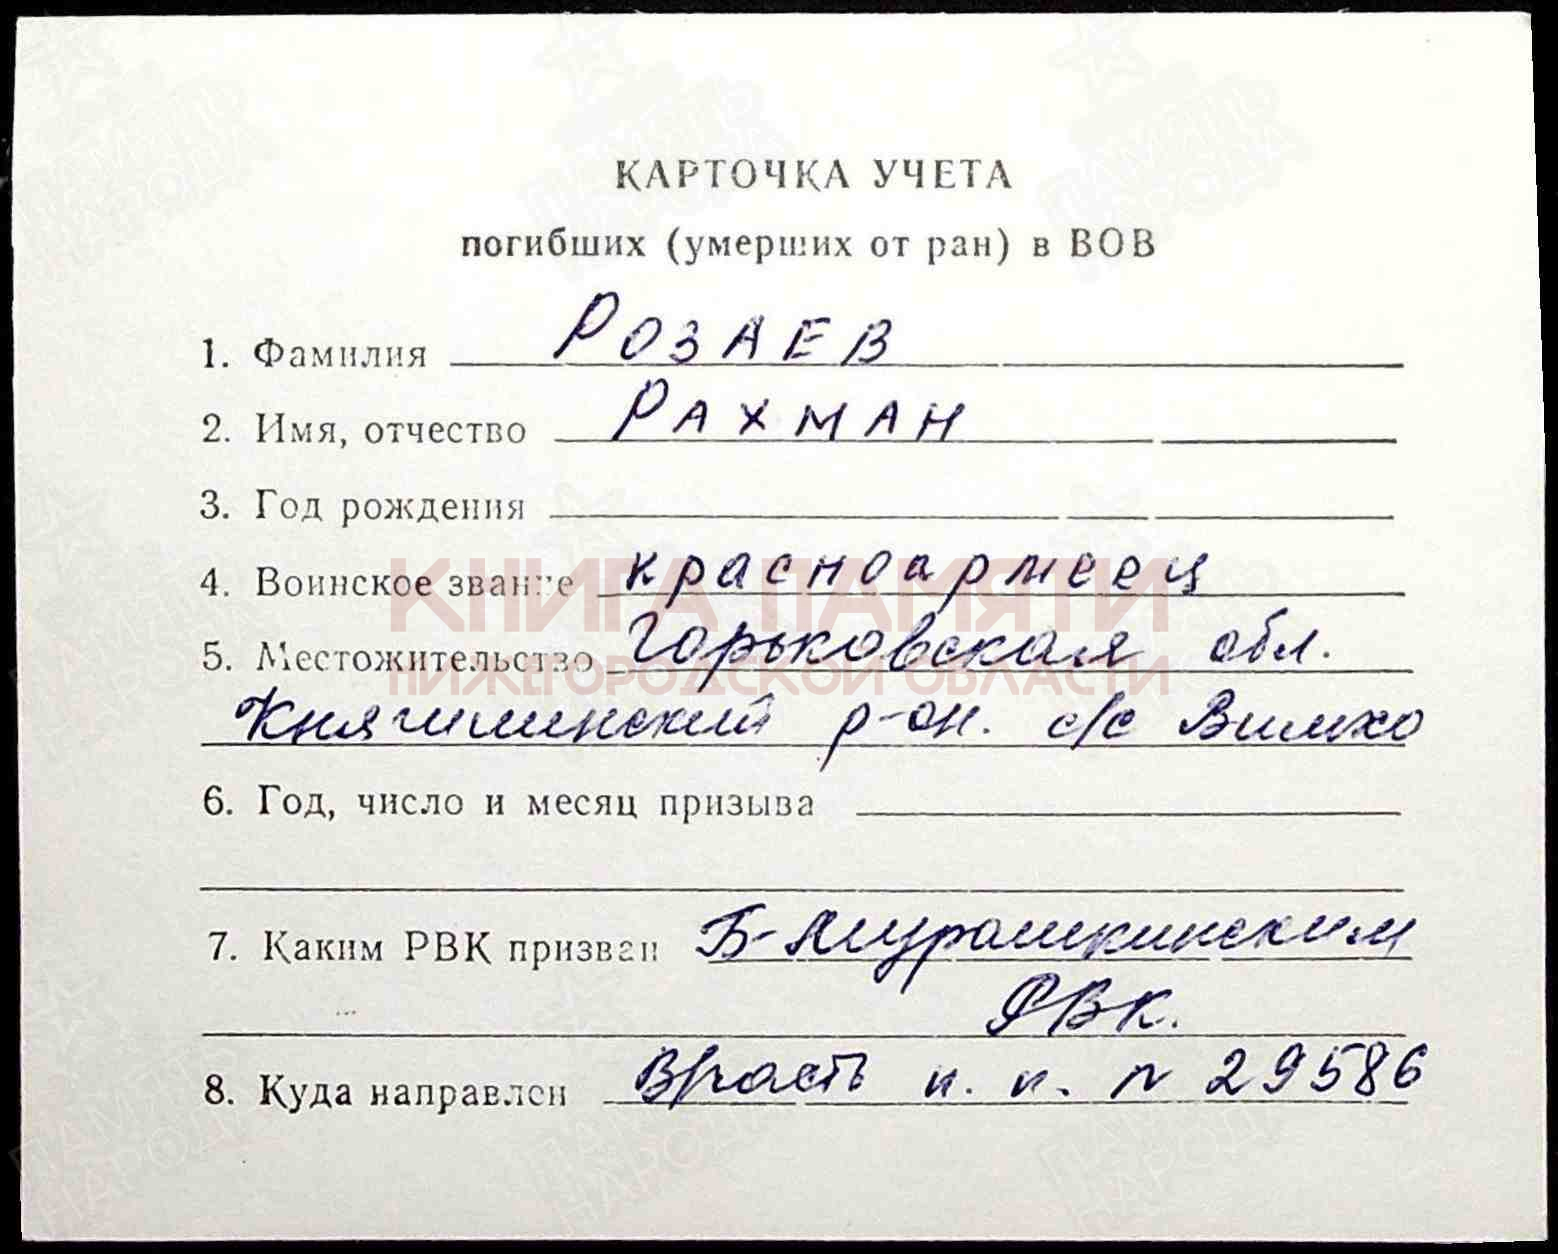 КАРТОЧКА УЧЕТА
погибших (умерших от ран) в ВОВ
1. Фамилия РОЗАЕВ
2. Имя, отчество РАХМАН
3. Год рождения
4. Воинское звание красноармеец
5. Местожительство Горьковская обл.
Княгининский р-он. с/с Вилихо
6. Год, число и месяц призыва
7. Каким РВК призван Б-Мурашкинским
РВК.
8. Куда направлен В/часть п. п. N 29586
КНИГА ПАМЯТИ
НИЖЕГОРОДСКОЙ ОБЛАСТИ
ПАМЯТЬ НАРОДА